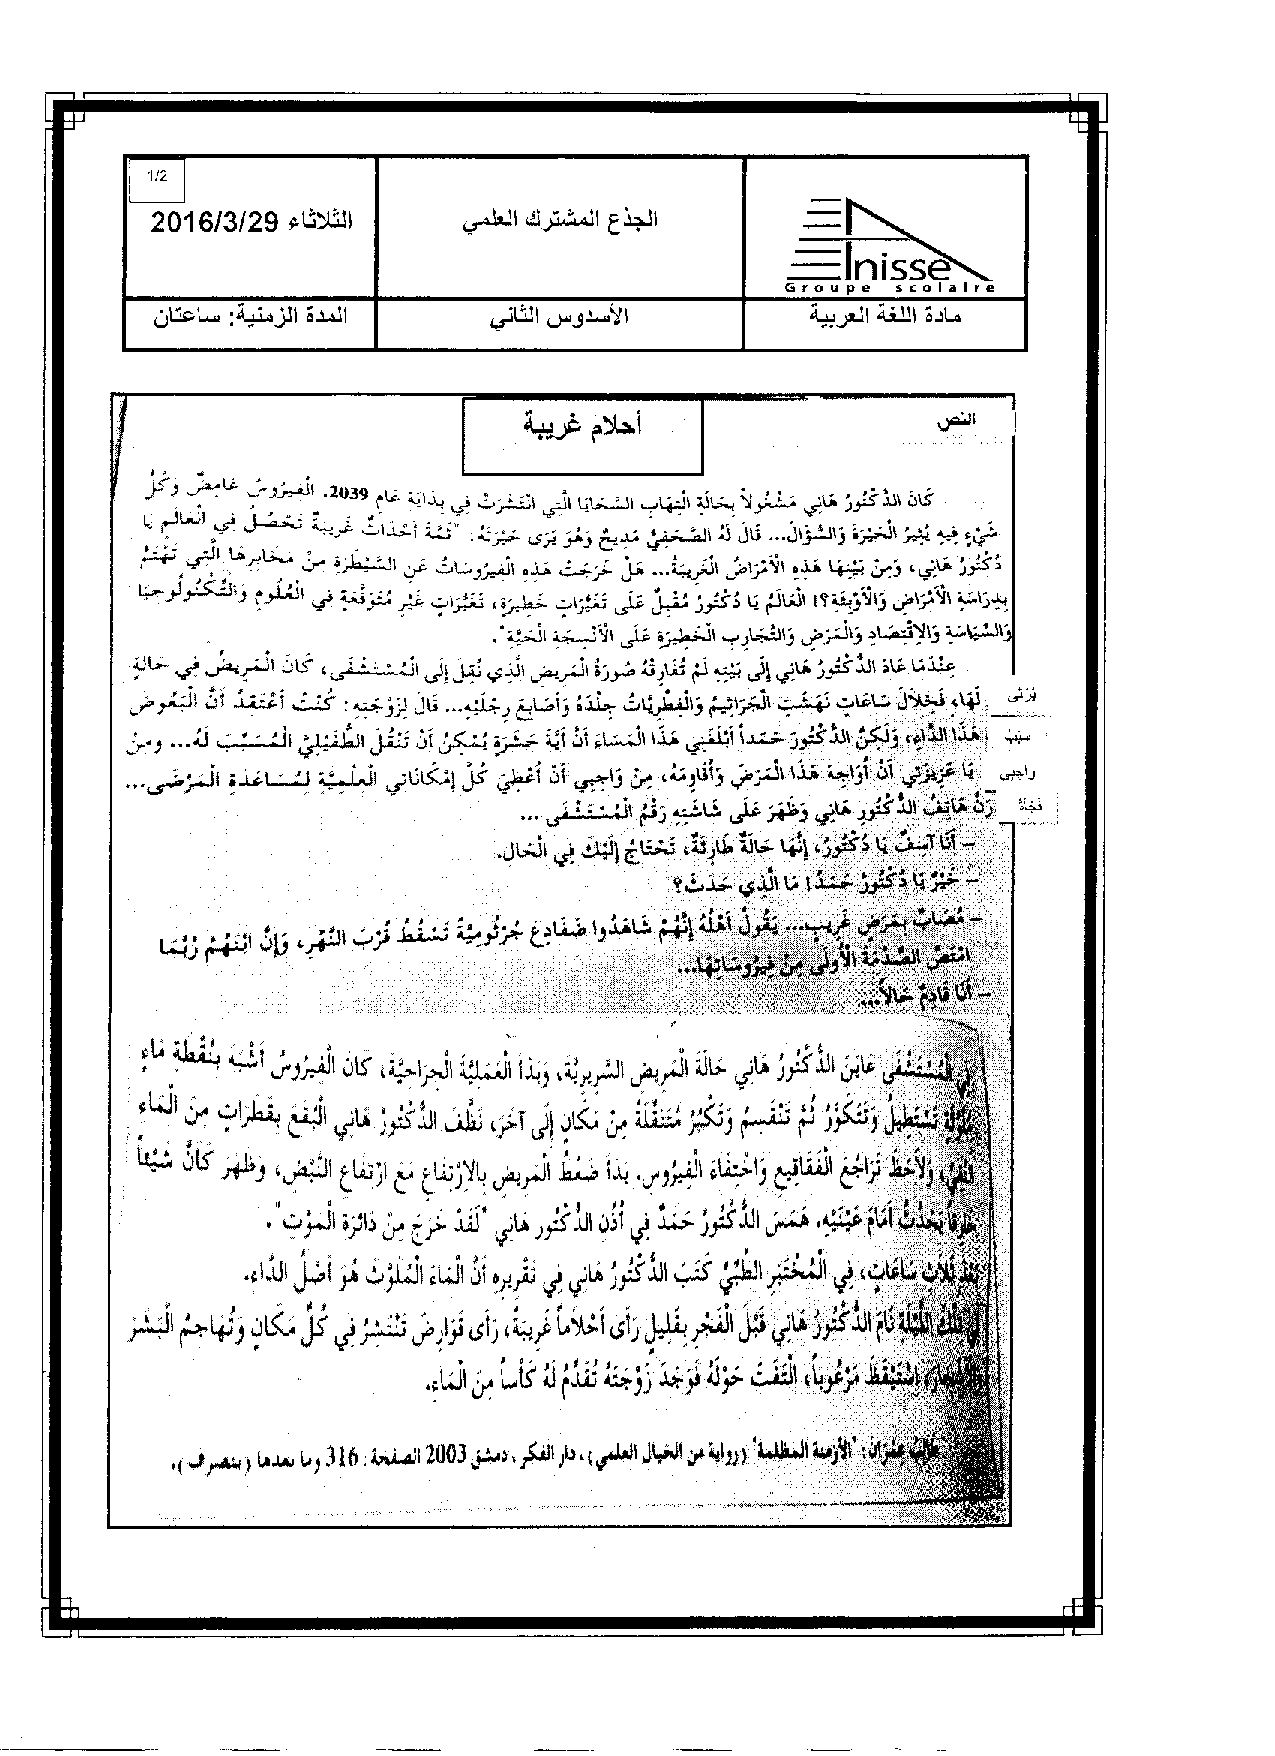 1/2
الثلاثاء 2016/3/29
الجذع المشترك العلمي
Anisse
Groupe scolaire
المدة الزمنية: ساعتان
الأسدوس الثاني
مادة اللغة العربية
النص
أحلام غريبة
كَانَ الدُّكْتُورُ هَانِي مَشْغُولاً بِحَالَةِ الْتِهَابِ السَّحَايَا الَّتِي انْتَشَرَتْ فِي بِدَايَةِ عَامِ 2039. الْفَيْرُوسُ غَامِضٌ وَكُلُّ
شَيْءٍ فِيهِ يُثِيرُ الْحَيْرَةَ وَالسُّؤَالَ... قَالَ لَهُ الصَّحَفِيُّ مَدِيحٌ وَهُوَ يَرَى حَيْرَتَهُ: "ثَمَّةَ أَحْدَاثٌ غَرِيبَةٌ تَحْصُلُ فِي الْعَالَمِ يَا
دُكْتُورُ هَانِي، وَمِنْ بَيْنِهَا هَذِهِ الْأَمْرَاضُ الْغَرِيبَةُ... هَلْ خَرَجَتْ هَذِهِ الْفَيْرُوسَاتُ عَنِ السَّيْطَرَةِ مِنْ مَخَابِرِهَا الَّتِي تَهْتَمُّ
بِدِرَاسَةِ الْأَمْرَاضِ وَالْأَوْبِئَةِ؟! الْعَالَمُ يَا دُكْتُورُ مُقْبِلٌ عَلَى تَغَيُّرَاتٍ خَطِيرَةٍ، تَغَيُّرَاتٍ غَيْرِ مُتَوَقَّعَةٍ فِي الْعُلُومِ وَالتِّكْنُولُوجِيَا
وَالسِّيَاسَةِ وَالِاقْتِصَادِ وَالْمَرَضِ وَالتَّجَارِبِ الْخَطِيرَةِ عَلَى الْأَنْسِجَةِ الْحَيَّةِ".
عِنْدَمَا عَادَ الدُّكْتُورُ هَانِي إِلَى بَيْتِهِ لَمْ تُفَارِقْهُ صُورَةُ الْمَرِيضِ الَّذِي نُقِلَ إِلَى الْمُسْتَشْفَى، كَانَ الْمَرِيضُ فِي حَالَةٍ
يُرْثَى لَهَا، فَخِلَالَ سَاعَاتٍ نَهَشَتِ الْجَرَاثِيمُ وَالْفِطْرِيَّاتُ جِلْدَهُ وَأَصَابِعَ رِجْلَيْهِ... قَالَ لِزَوْجَتِهِ: كُنْتُ أَعْتَقِدُ أَنَّ الْبَعُوضَ
سَبَبُ هَذَا الدَّاءِ، وَلَكِنَّ الدُّكْتُورَ حَمَداً أَبْلَغَنِي هَذَا الْمَسَاءَ أَنَّ أَيَّةَ حَشَرَةٍ يُمْكِنُ أَنْ تَنْقُلَ الطُّفَيْلِيَّ الْمُسَبِّبَ لَهُ... وَمِنْ
وَاجِبِي يَا عَزِيزَتِي أَنْ أُوَاجِهَ هَذَا الْمَرَضَ وَأُقَاوِمَهُ، مِنْ وَاجِبِي أَنْ أُعْطِيَ كُلَّ إِمْكَانَاتِي الْعِلْمِيَّةِ لِمُسَاعَدَةِ الْمَرْضَى...
فَجْأَةً رَنَّ هَاتِفُ الدُّكْتُورِ هَانِي وَظَهَرَ عَلَى شَاشَتِهِ رَقْمُ الْمُسْتَشْفَى ...
– أَنَا آسِفٌ يَا دُكْتُورُ، إِنَّهَا حَالَةٌ طَارِئَةٌ، تَحْتَاجُ إِلَيْكَ فِي الْحَالِ.
– خَيْرٌ يَا دُكْتُورُ حَمَدُ! مَا الَّذِي حَدَثَ؟
– مُصَابٌ بِمَرَضٍ غَرِيبٍ... يَقُولُ أَهْلُهُ إِنَّهُمْ شَاهَدُوا ضَفَادِعَ جُرْثُومِيَّةً تَسْقُطُ قُرْبَ النَّهْرِ، وَإِنَّ ابْنَهُمْ رُبَّمَا
امْتَصَّ الصَّدْمَةَ الْأُولَى مِنْ فَيْرُوسَاتِهَا...
– أَنَا قَادِمٌ حَالاً...
فِي الْمُسْتَشْفَى عَايَنَ الدُّكْتُورُ هَانِي حَالَةَ الْمَرِيضِ السَّرِيرِيَّةَ، وَبَدَأَ الْعَمَلِيَّةَ الْجِرَاحِيَّةَ، كَانَ الْفَيْرُوسُ أَشْبَهَ بِنُقْطَةِ مَاءٍ
تَسْتَطِيلُ وَتَتَكَوَّرُ ثُمَّ تَنْقَسِمُ وَتَكْبُرُ مُتَنَقِّلَةً مِنْ مَكَانٍ إِلَى آخَرَ، نَظَّفَ الدُّكْتُورُ هَانِي الْبُقَعَ بِقَطَرَاتٍ مِنَ الْمَاءِ
النَّقِيِّ، وَلَاحَظَ تَرَاجُعَ الْفَقَاقِيعِ وَاخْتِفَاءَ الْفَيْرُوسِ. بَدَأَ ضَغْطُ الْمَرِيضِ بِالِارْتِفَاعِ مَعَ ارْتِفَاعِ النَّبْضِ، وَظَهَرَ كَأَنَّ شَيْئاً
خَارِقاً يَحْدُثُ أَمَامَ عَيْنَيْهِ، هَمَسَ الدُّكْتُورُ حَمَدٌ فِي أُذُنِ الدُّكْتُورِ هَانِي "لَقَدْ خَرَجَ مِنْ دَائِرَةِ الْمَوْتِ".
بَعْدَ ثَلَاثِ سَاعَاتٍ، فِي الْمُخْتَبَرِ الطِّبِّيِّ كَتَبَ الدُّكْتُورُ هَانِي فِي تَقْرِيرِهِ أَنَّ الْمَاءَ الْمُلَوَّثَ هُوَ أَصْلُ الدَّاءِ.
فِي تِلْكَ اللَّيْلَةِ نَامَ الدُّكْتُورُ هَانِي قَبْلَ الْفَجْرِ بِقَلِيلٍ رَأَى أَحْلَاماً غَرِيبَةً، رَأَى قَوَارِضَ تَنْتَشِرُ فِي كُلِّ مَكَانٍ وَتُهَاجِمُ الْبَشَرَ
اسْتَيْقَظَ مَرْعُوباً، الْتَفَتَ حَوْلَهُ فَوَجَدَ زَوْجَتَهُ تُقَدِّمُ لَهُ كَأْساً مِنَ الْمَاءِ.
طالب عمران: "الأزمنة المظلمة" (رواية من الخيال العلمي)، دار الفكر، دمشق 2003 الصفحة: 316 وما بعدها (بتصرف).